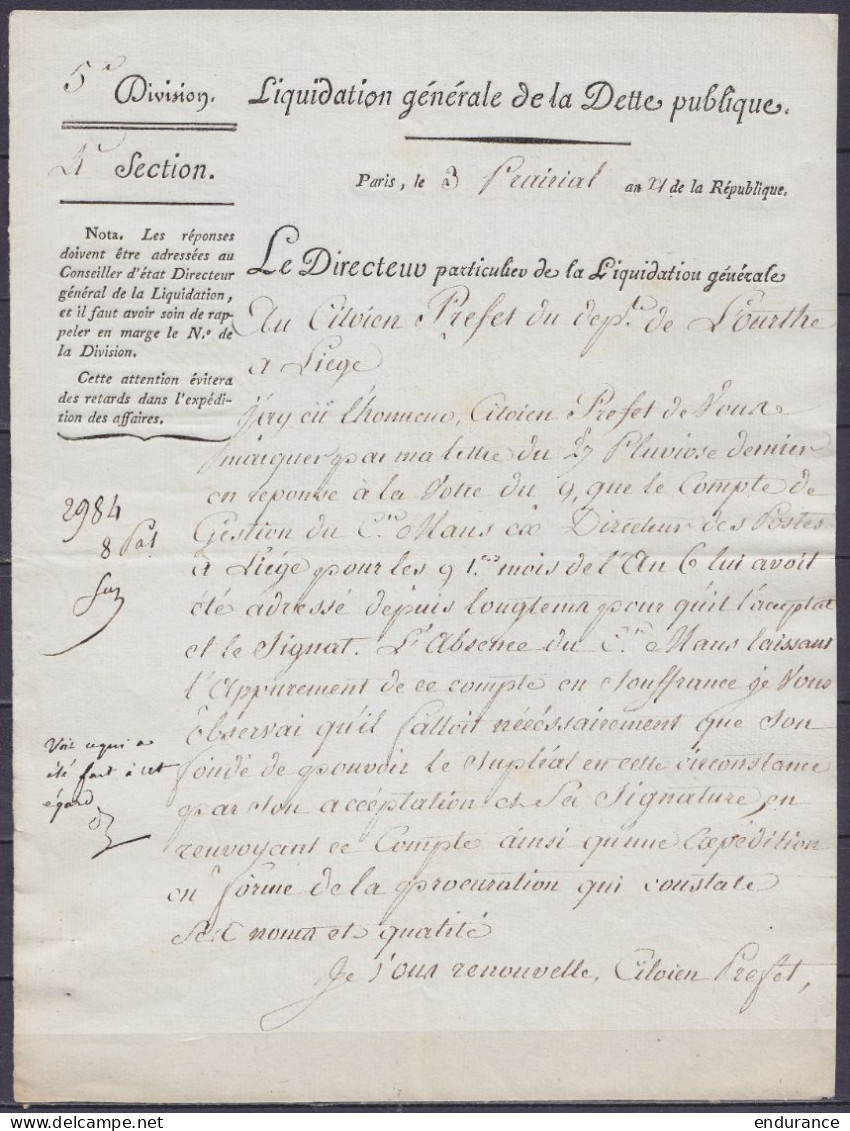 5e Division.
Liquidation générale de la Dette publique.
4e Section.
Paris, le 3 Prairial an XI de la République.
Nota. Les réponses
doivent être adressées au
Conseiller d'état Directeur
général de la Liquidation,
et il faut avoir soin de rap-
peler en marge le N.o de
la Division.
Cette attention évitera
des retards dans l'expédi-
tion des affaires.
Le Directeur particulier de la Liquidation générale
Au Citoien Prefet du dept. de L'ourthe
a Liege
J'ay eü l'honneur, Citoien Prefet de Vous
marquer par ma lettre du 27 Pluviose dernier
en reponse à la Votre du 9, que le Compte de
Gestion du Cen Mans ex Directeur des Postes
à Liége pour les 9 1.ers mois de l'An 6 lui avoit
été adressé depuis longtems pour qu'il l'acceptat
et le Signat. L'Absence du Cen Mans laissant
l'Appurement de ce compte en Souffrance je Vous
observai qu'il falloit nécéssairement que Son
fondé de pouvoir le Supléat en cette circonstance
par Son accéptation et Sa Signature, en
renvoyant ce Compte ainsi qu'une Expédition
en forme de la procuration qui constate
Ses noms et qualité
Je Vous renouvelle, Citoien Prefet,
2984
8 Pal
Voir ce qui a
été fait à cet
égard
endurance